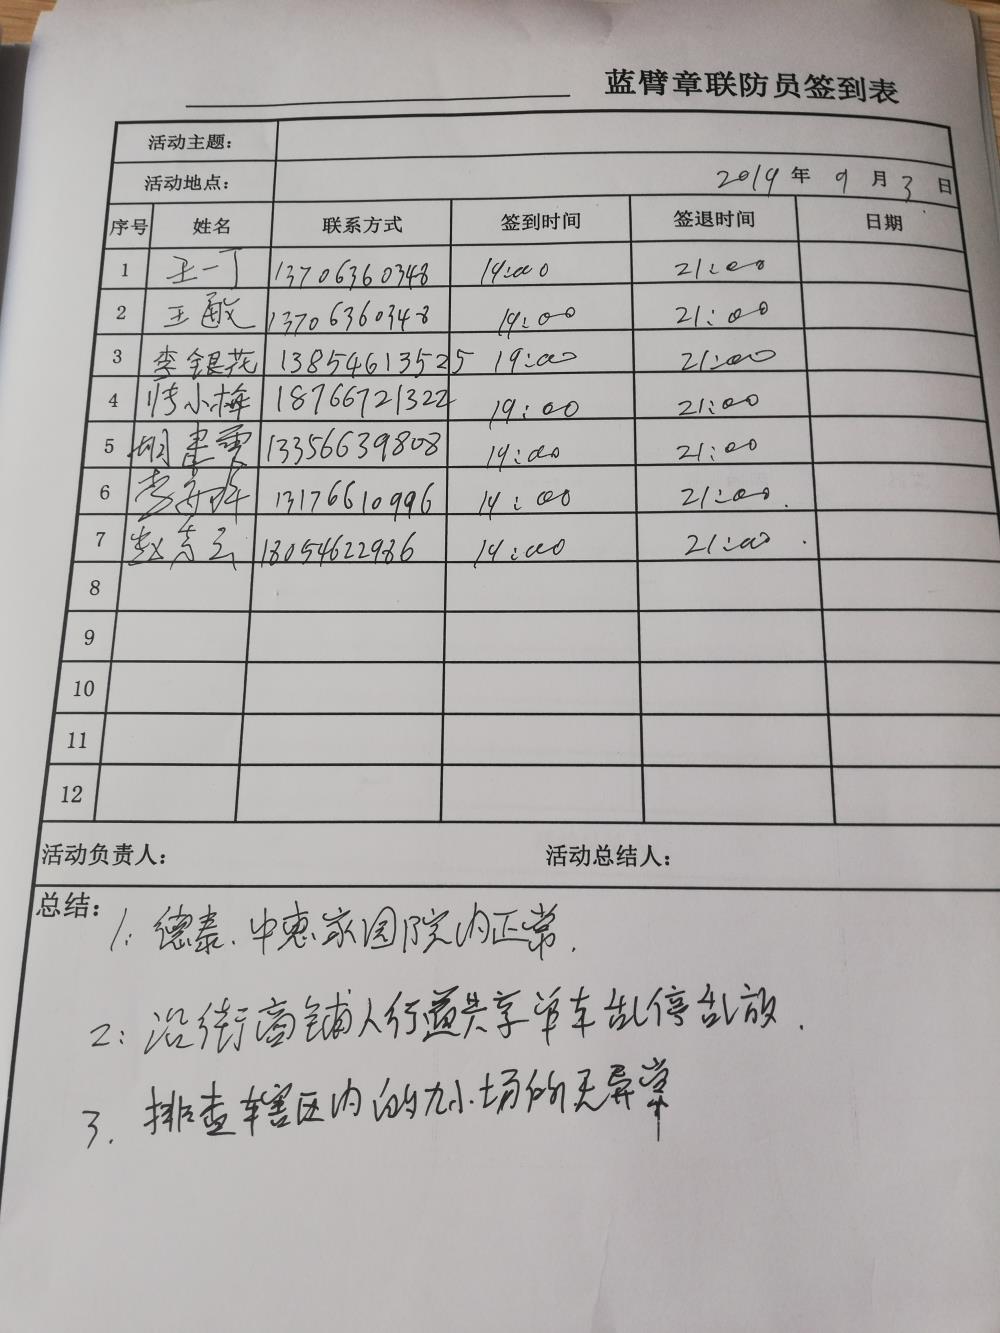 蓝臂章联防员签到表
活动主题：
活动地点： 2019 年 9 月 3 日
序号 姓名 联系方式 签到时间 签退时间 日期
1 王一丁 13706360348 19:00 21:00
2 王敏 13706360348 19:00 21:00
3 李银花 13854613525 19:00 21:00
4 小梅 18766721322 19:00 21:00
5 胡建 13356639808 19:00 21:00
6 李 13176610996 19:00 21:00
7 赵秀云 18054622986 19:00 21:00
8
9
10
11
12
活动负责人： 活动总结人：
总结： 1: 德泰、中惠家园院内正常.
2: 沿街商铺人行道共享单车乱停乱放.
3. 排查辖区内的九小场所无异常